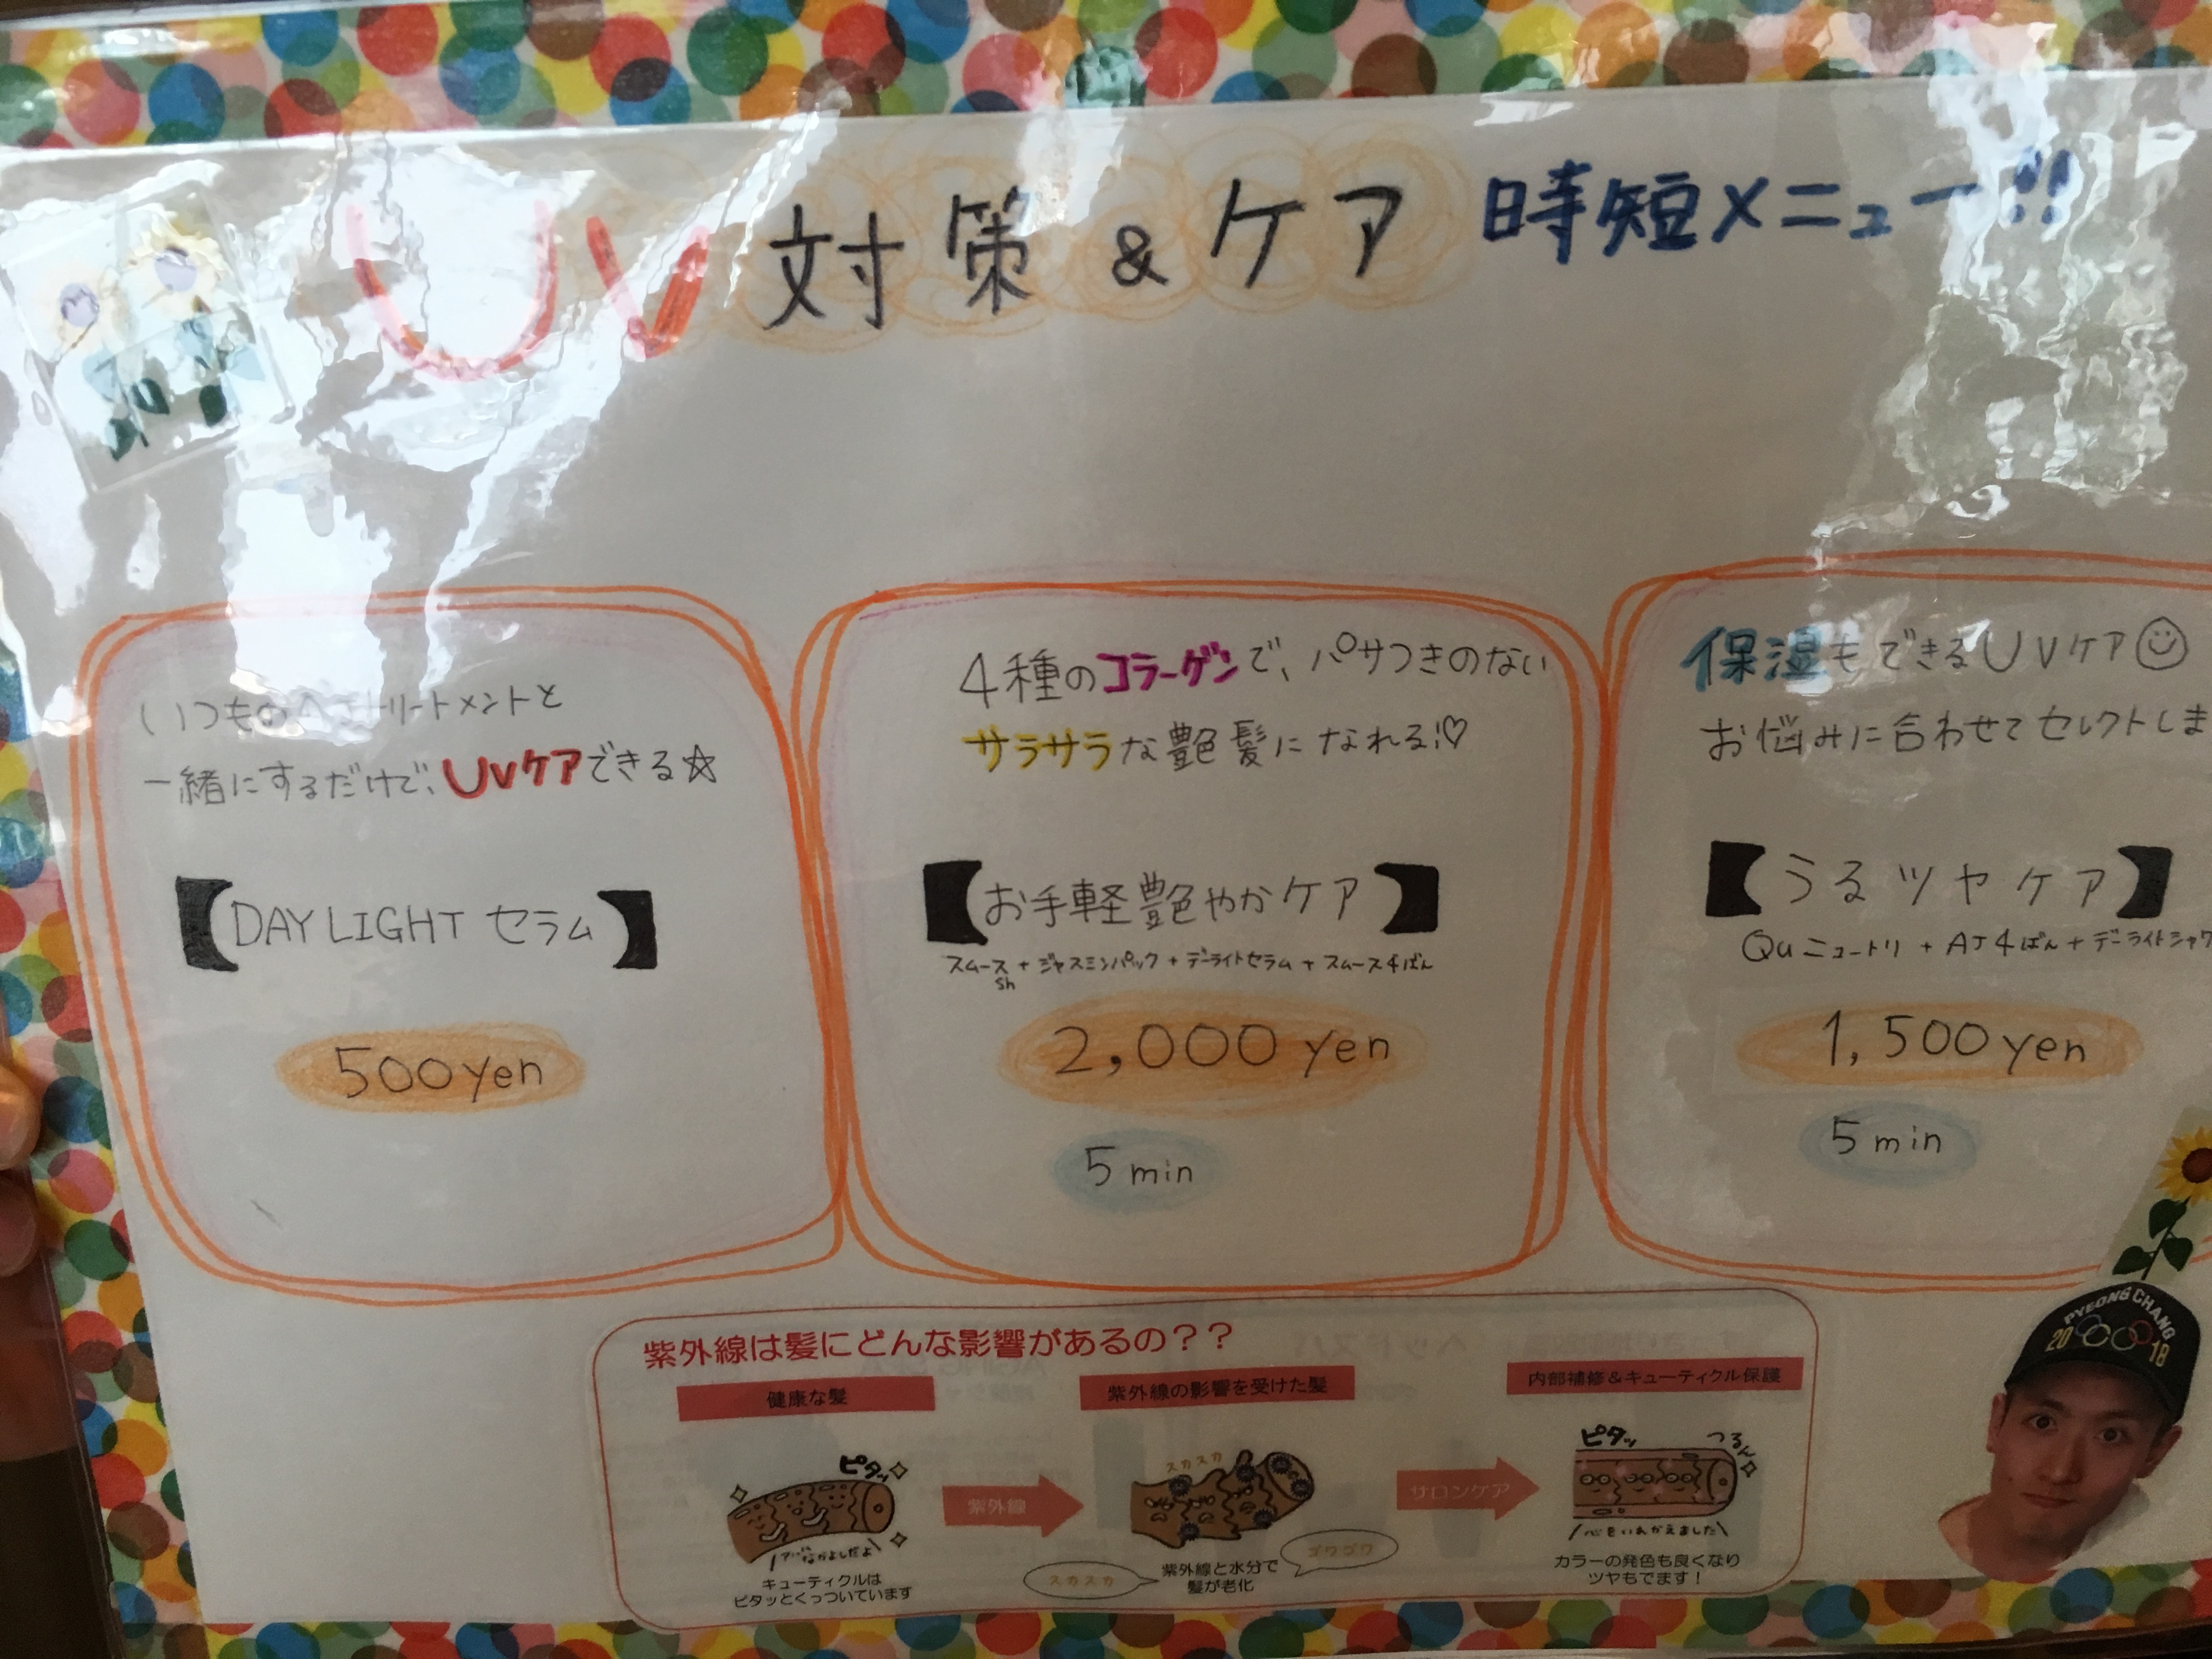 UV 対策 & ケア 時短メニュー!!
いつもの トリートメントと
一緒にするだけで、UVケアできる☆
【DAY LIGHT セラム】
500yen
4種のコラーゲンで、パサつきのない
サラサラな艶髪になれる!♡
【お手軽艶やかケア】
スムース + ジャスミンパック + デーライトセラム + スムース4ばん
sh
2,000 yen
5 min
保湿もできるUVケア
お悩みに合わせてセレクトしま
【うるツヤケア】
Quニュートリ + AJ4ばん + デーライトシャワ
1,500 yen
5 min
紫外線は髪にどんな影響があるの??
健康な髪
紫外線の影響を受けた髪
内部補修&キューティクル保護
ピタッ
スカスカ
ピタッ
つるん
紫外線
サロンケア
なかよしだよ
\心をいれかえました/
キューティクルは
ピタッとくっついています
スカスカ
紫外線と水分で
髪が老化
ゴワゴワ
カラーの発色も良くなり
ツヤもでます!
PYEONGCHANG
2018